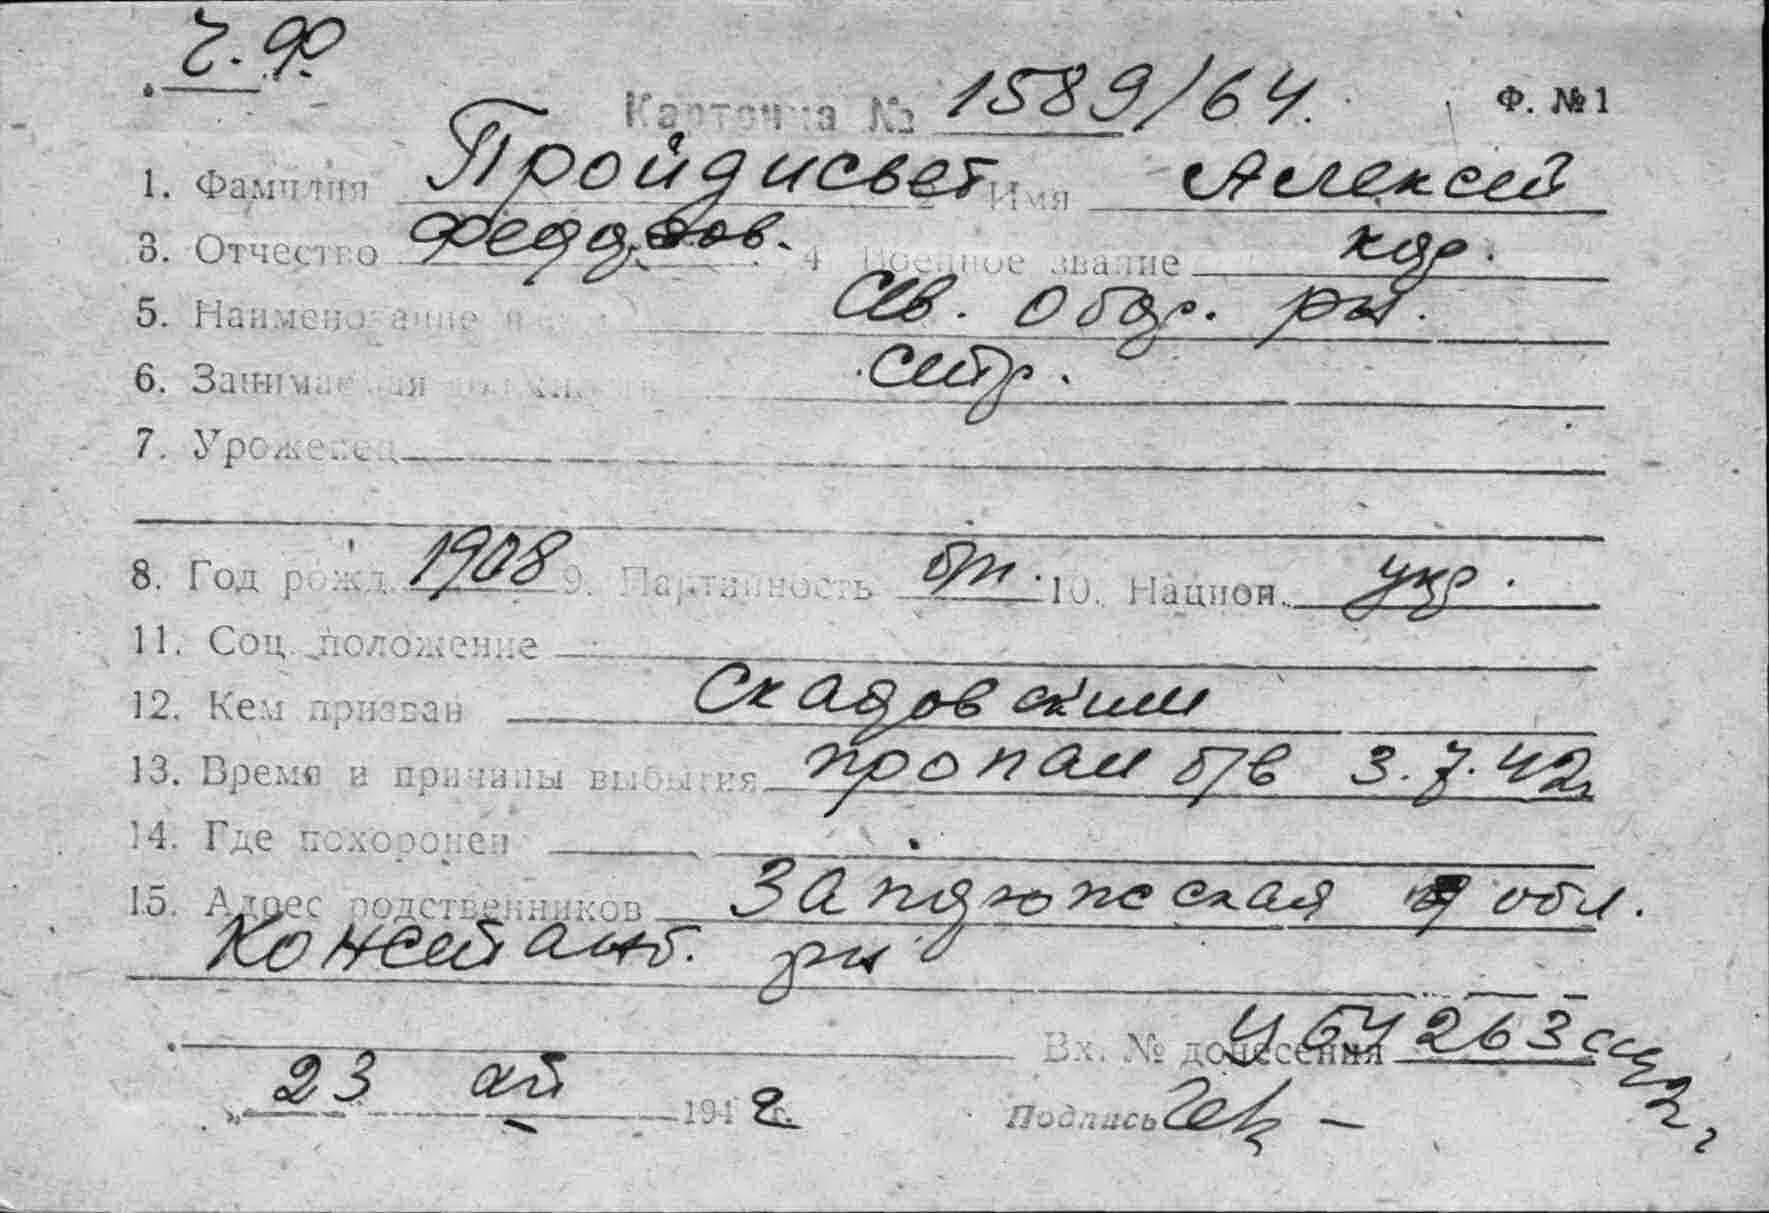 Ч.Ф.
Карточка № 1589/64. Ф. №1
1. Фамилия Пройдисвет Имя Алексей
3. Отчество Федоров. 4 Военное звание кдр.
5. Наименование Сев. обор. рн.
6. Занимаемая стр.
7. Уроженец
8. Год рожд. 1908 9. Партийность б/п. 10. Национ. укр.
11. Соц. положение
12. Кем призван Скадовским
13. Время и причины выбытия пропал б/в 3.7.42г
14. Где похоронен
15. Адрес родственников обл.
рн
Вх. № донесения
23 1942 г.
Подпись